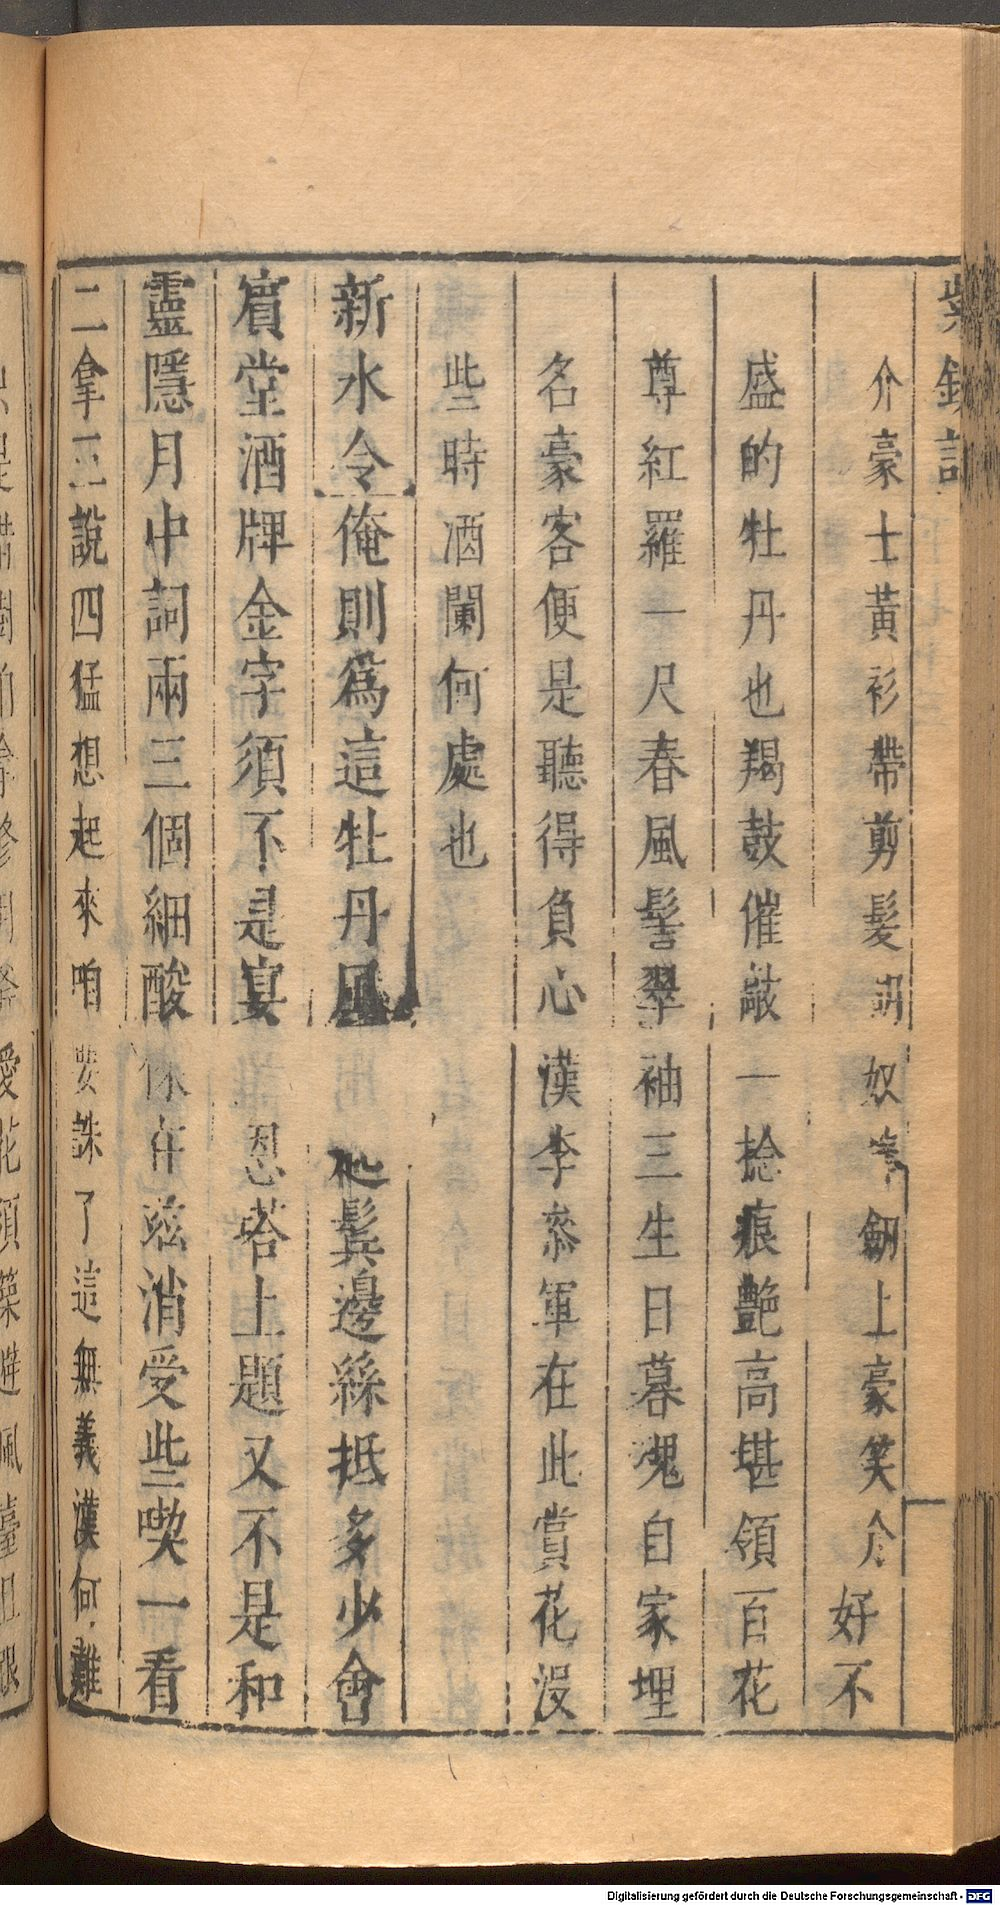 紫釵記
介豪士黃衫帶剪髮胡奴 劒上豪笑介好不
盛的牡丹也羯鼓催敲一捻痕艷高堪領百花
尊紅羅一尺春風髻翠袖三生日暮魂自家埋
名豪客便是聽得負心漢李參軍在此賞花沒
些時酒闌何處也
新水令俺則爲這牡丹風 鬓邊絲抵多少會
賓堂酒牌金字須不是宴 恩塔上題又不是和
靈隱月中詞兩三個細酸 在玆消受些喫一看
二拿三說四猛想起來咱要誅了這無義漢何難
Digitalisierung gefördert durch die Deutsche Forschungsgemeinschaft - DFG